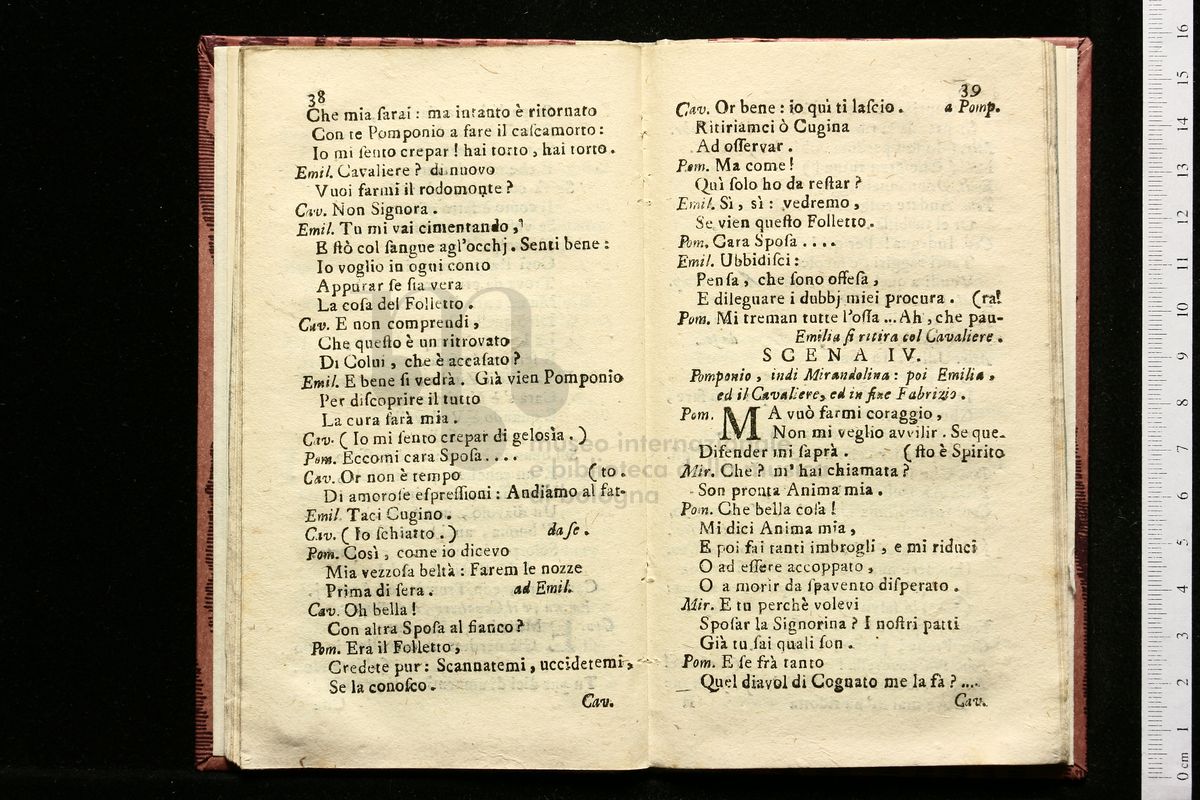 38
Che mia ſarai: ma intanto è ritornato
Con te Pomponio a fare il caſcamorto:
Io mi ſento crepar! hai torto, hai torto.
Emil. Cavaliere? di nuovo
Vuoi farmi il rodomonte?
Cav. Non Signora.
Emil. Tu mi vai cimentando,
E ſtò col ſangue agl'occhj. Senti bene:
Io voglio in ogni conto
Appurar ſe ſia vera
La coſa del Folletto.
Cav. E non comprendi,
Che queſto è un ritrovato
Di Colui, che è accaſato?
Emil. E bene ſi vedrà. Già vien Pomponio
Per diſcoprire il tutto
La cura ſarà mia.
Cav. (Io mi ſento crepar di gelosìa.)
Pom. Eccomi cara Spoſa....
Cav. Or non è tempo (to.
Di amoroſe eſpreſſioni: Andiamo al fat-
Emil. Taci Cugino.
Cav. (Io ſchiatto.) da ſe.
Pom. Così, come io dicevo
Mia vezzoſa beltà: Farem le nozze
Prima di ſera. ad Emil.
Cav. Oh bella!
Con altra Spoſa al fianco?
Pom. Era il Folletto,
Credete pur: Scannatemi, uccidetemi,
Se la conoſco.
Cav.
39
Cav. Or bene: io quì ti laſcio. a Pomp.
Ritiriamci ò Cugina
Ad oſſervar.
Pom. Ma come!
Quì ſolo ho da reſtar?
Emil. Sì, sì: vedremo,
Se vien queſto Folletto.
Pom. Cara Spoſa....
Emil. Ubbidiſci:
Penſa, che ſono offeſa,
E dileguare i dubbj miei procura. (ra!
Pom. Mi treman tutte l'oſſa... Ah, che pau-
Emilia ſi ritira col Cavaliere.
SCENA IV.
Pomponio, indi Mirandolina: poi Emilia,
ed il Cavaliere, ed in fine Fabrizio.
Pom. MA vuò farmi coraggio,
Non mi veglio avvilir. Se que-
Difender mi ſaprà. (ſto è Spirito
Mir. Che? m'hai chiamata?
Son pronta Anima mia.
Pom. Che bella coſa!
Mi dici Anima mia,
E poi fai tanti imbrogli, e mi riduci
O ad eſſere accoppato,
O a morir da ſpavento diſperato.
Mir. E tu perchè volevi
Spoſar la Signorina? I noſtri patti
Già tu ſai quali ſon.
Pom. E ſe frà tanto
Quel diavol di Cognato me la fà?....
Cav.
museo internazionale
e biblioteca
di bologna
0 cm 1 2 3 4 5 6 7 8 9 10 11 12 13 14 15 16